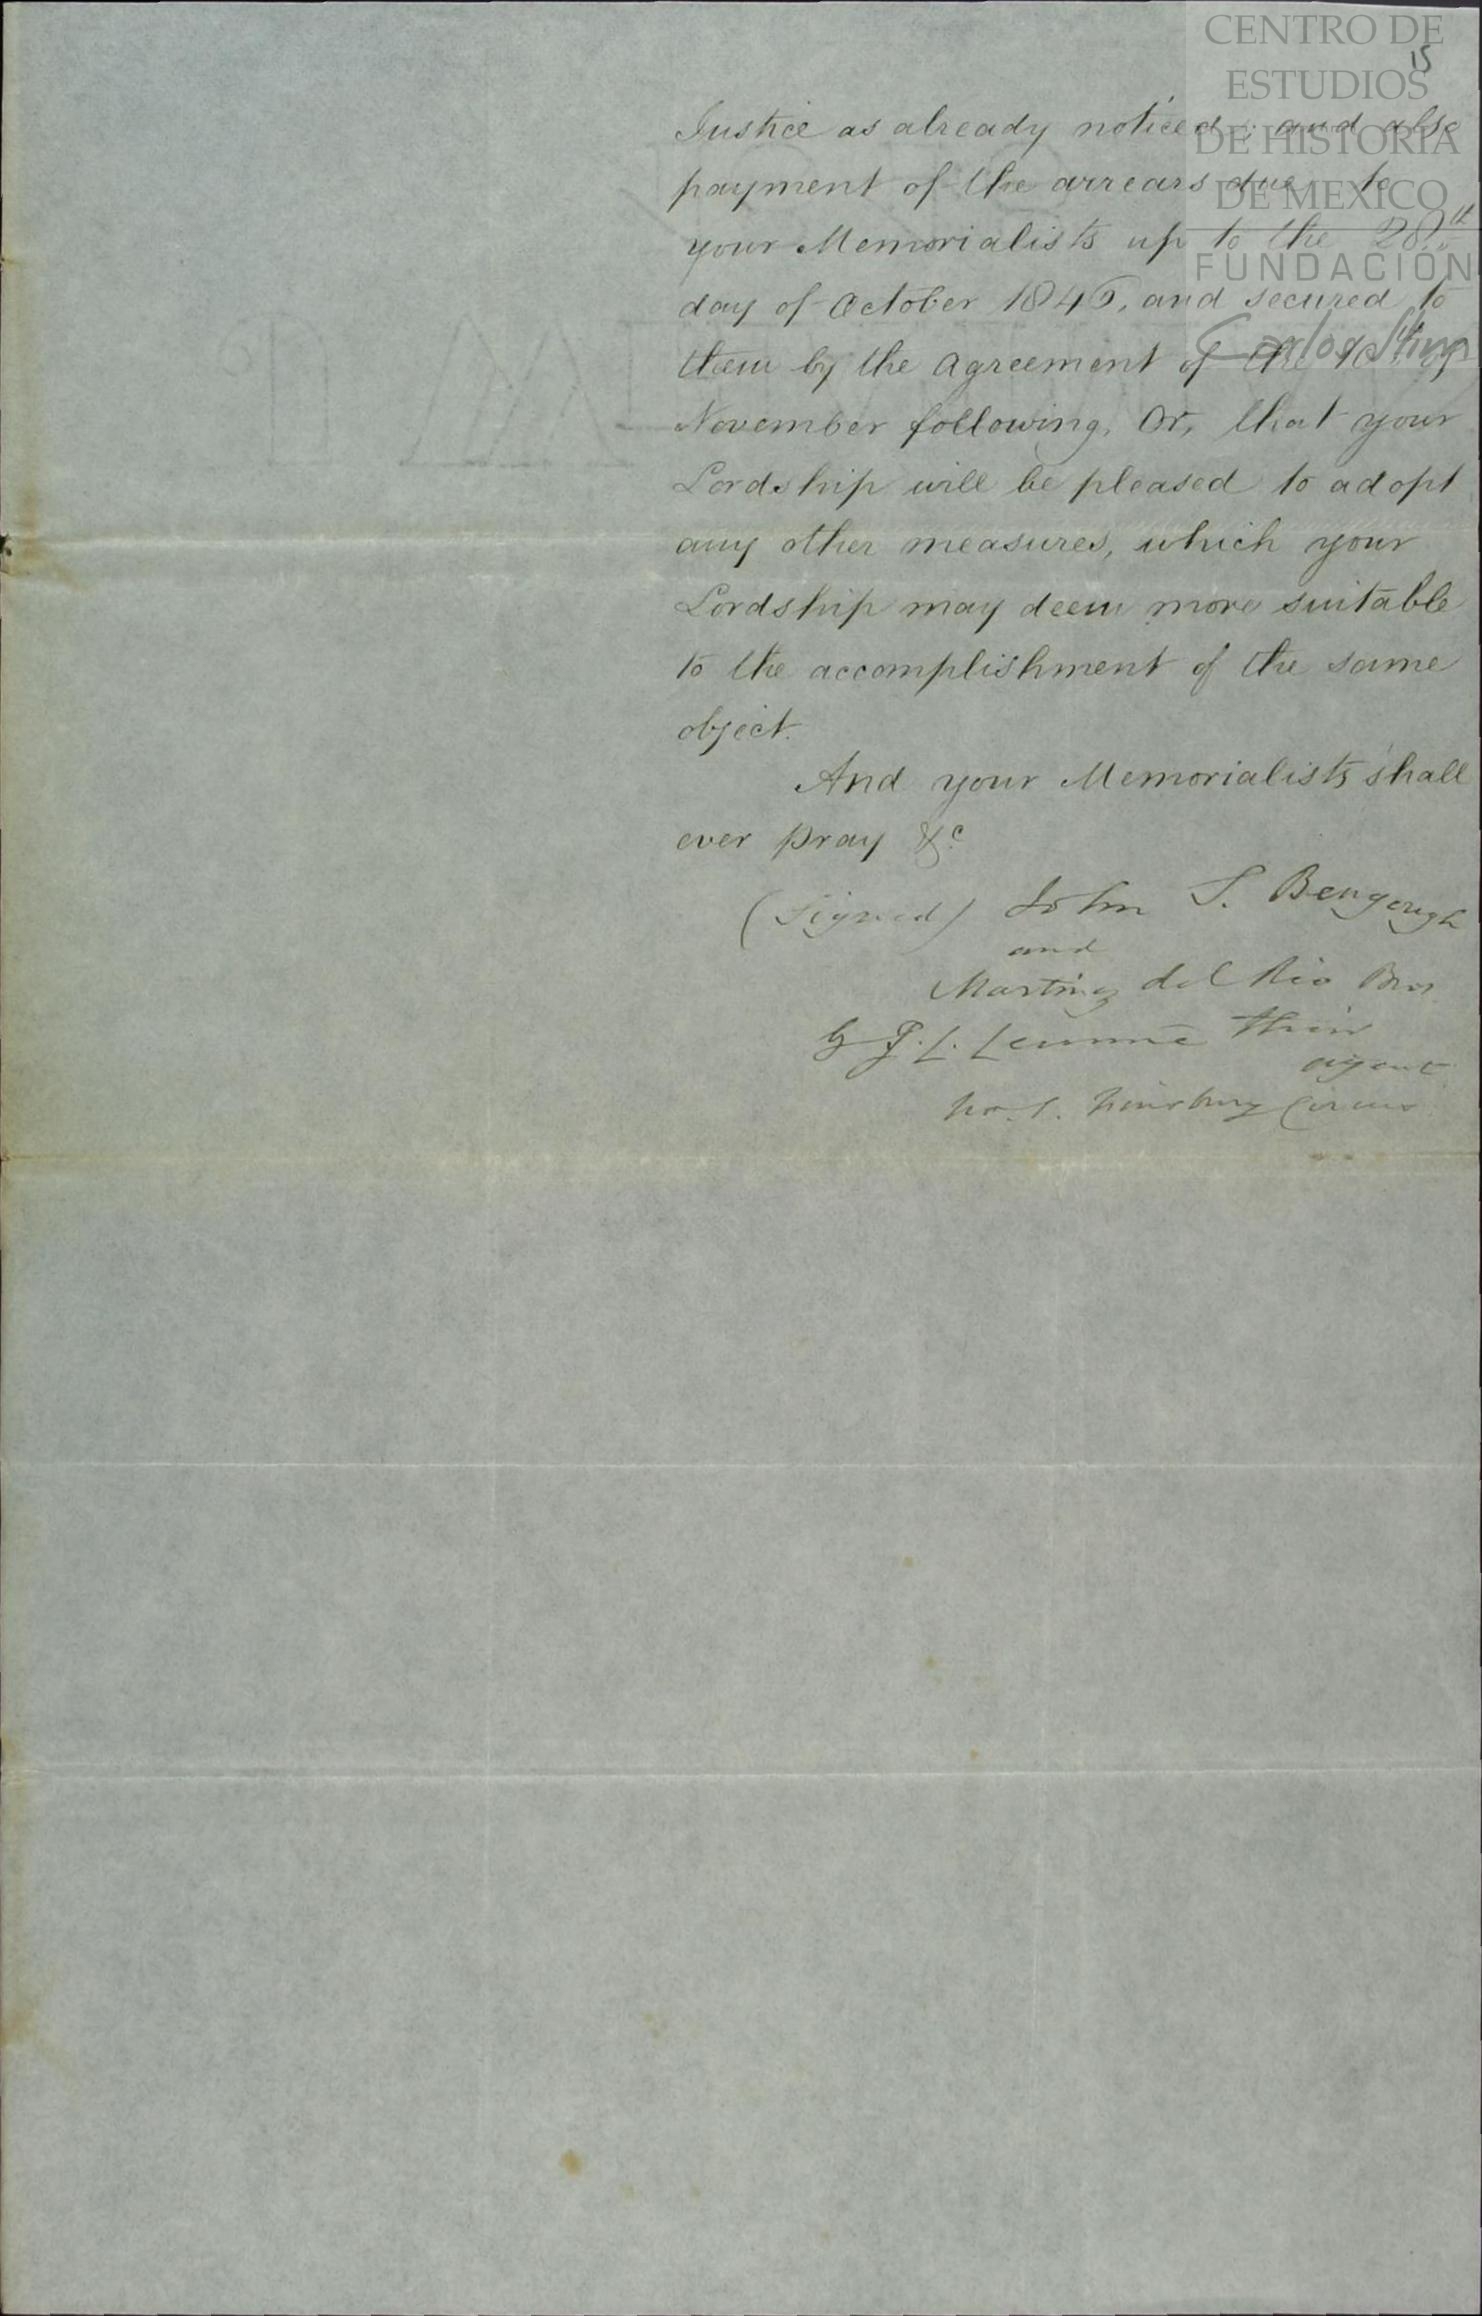 CENTRO DE
ESTUDIOS
DE HISTORIA
DE MEXICO
FUNDACIÓN
Carlos Slim
15
Justice as already noticed; and also
payment of the arrears due to
your Memorialists up to the 28th
day of October 1845, and secured to
them by the Agreement of the of
November following, Or, that your
Lordship will be pleased to adopt
any other measures, which your
Lordship may deem more suitable
to the accomplishment of the same
object.
And your Memorialists shall
ever pray &c
(Signed) John S. Bengough
and
Martinez del Rio Bros
their
agent
Finsbury Circus